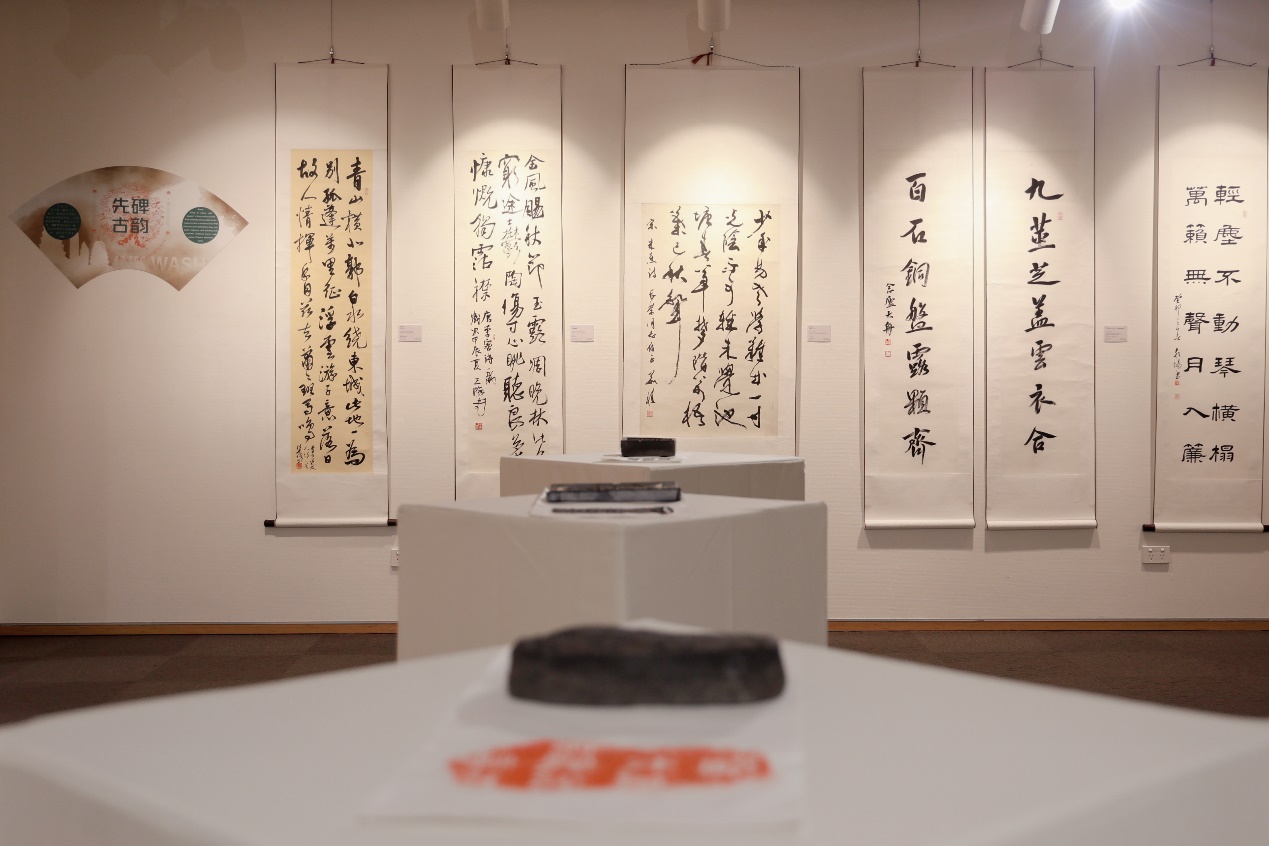 先古
碑韵
WASH
青山横北郭白水绕東城此地一為
别孤蓬萬里征浮雲游子意落日
故人情揮手自兹去蕭々班馬鳴
金風颺秋節玉露凋晚林此
窮途士鬱陶傷寸心眺聽良
慷慨獨霑襟
少年易老學難成一寸
光陰不可輕未覺池
塘春草夢階前梧
葉已秋聲
九莖芝蓋雲衣合
百石銅盤露顆齊
輕塵不動琴橫榻
萬籟無聲月入簾